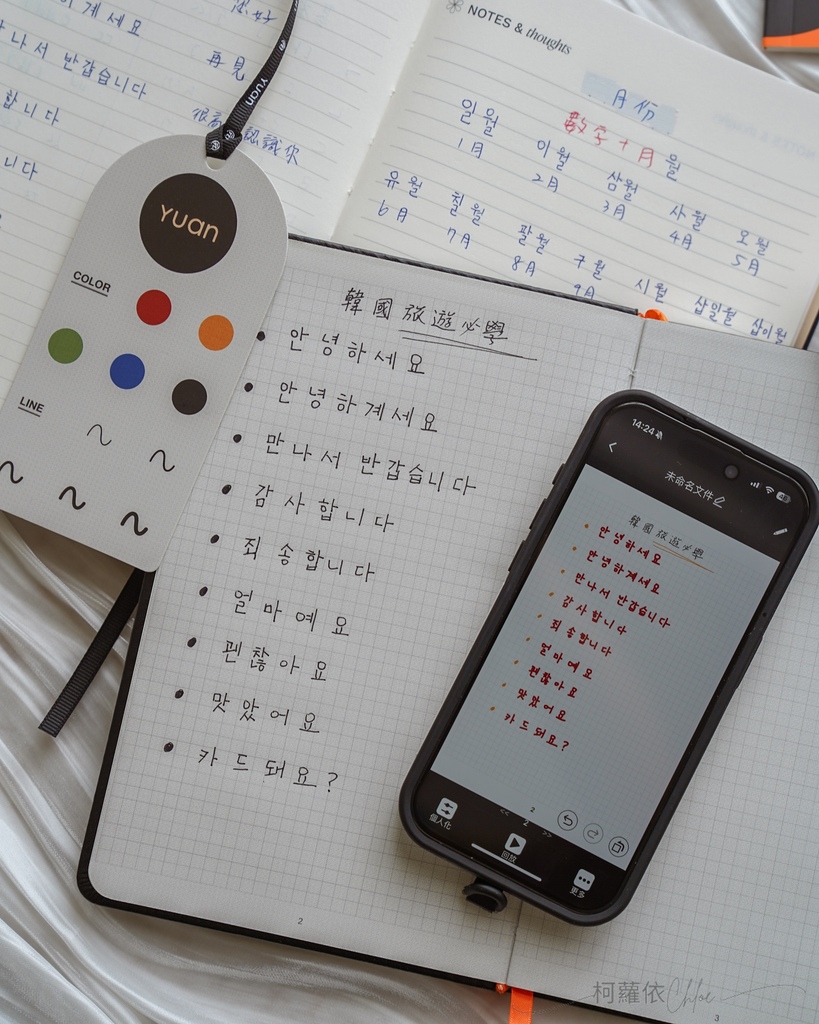 이계세요
나서 반갑습니다
再見
합니다
認識你
니다
NOTES & thoughts
月份
數字 + 月 월
일월 이월 삼월 사월 오월
1月 2月 3月 4月 5月
유월 칠월 팔월 구월 시월 십일월 십이월
6月 7月 8月 9月
Yuan
Yuan
COLOR
LINE
韓國旅遊必學
• 안녕하세요
• 안녕하계세요
• 만나서 반갑습니다
• 감사합니다
• 죄송합니다
• 얼마예요
• 괜찮아요
• 맛았어요
• 카드돼요?
2
3
14:24
未命名文件
韓國旅遊必學
안녕하세요
안녕하계세요
만나서 반갑습니다
감사합니다
죄송합니다
얼마예요
괜찮아요
맛았어요
카드돼요?
2
<< 2 >>
個人化 回放 更多
柯蘿依Chloe